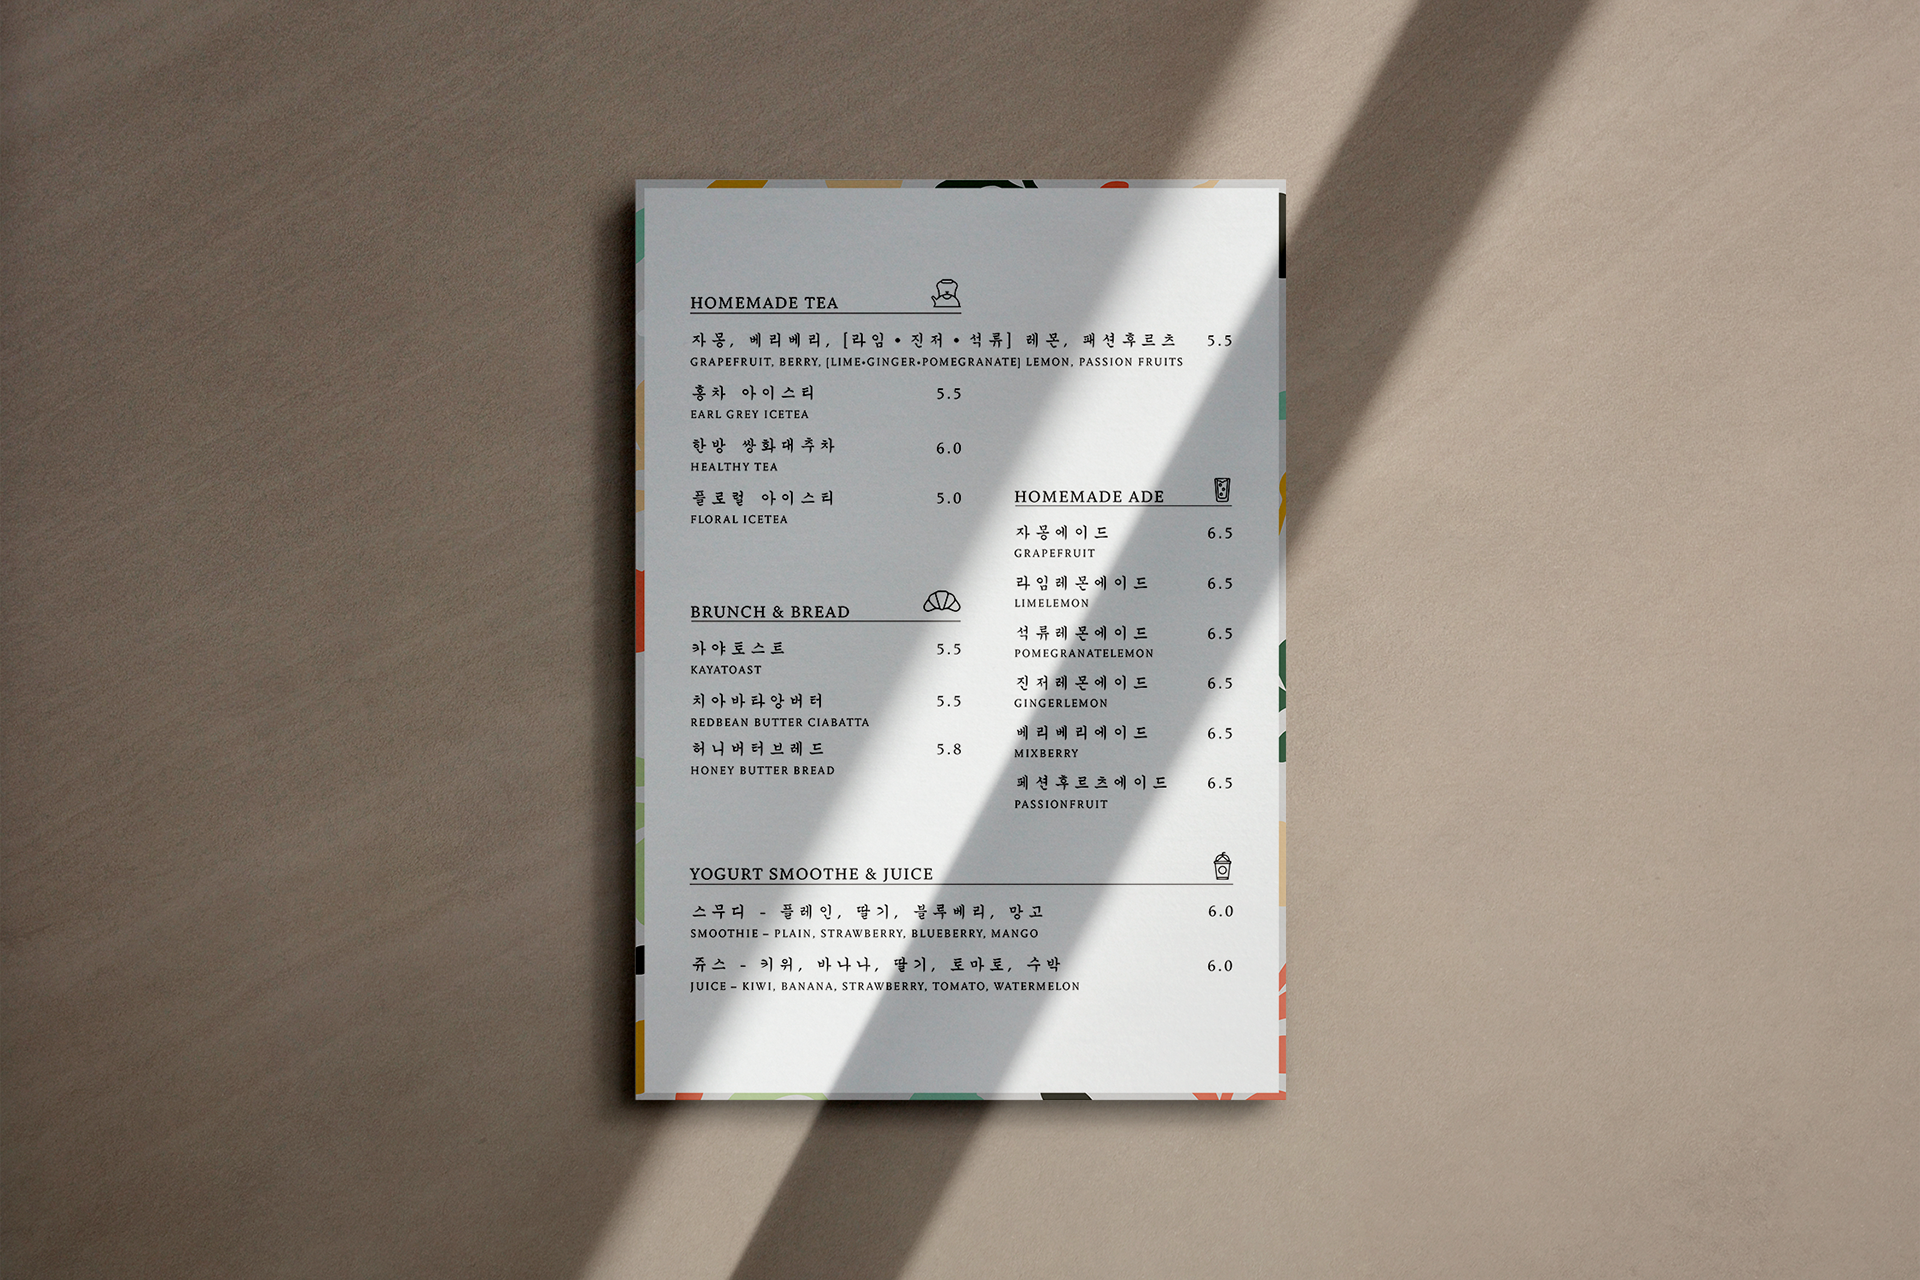 HOMEMADE TEA
자몽, 베리베리, [라임•진저•석류] 레몬, 패션후르츠 5.5
GRAPEFRUIT, BERRY, [LIME•GINGER•POMEGRANATE] LEMON, PASSION FRUITS
홍차 아이스티 5.5
EARL GREY ICETEA
한방 쌍화대추차 6.0
HEALTHY TEA
플로럴 아이스티 5.0
FLORAL ICETEA
BRUNCH & BREAD
카야토스트 5.5
KAYATOAST
치아바타앙버터 5.5
REDBEAN BUTTER CIABATTA
허니버터브레드 5.8
HONEY BUTTER BREAD
HOMEMADE ADE
자몽에이드 6.5
GRAPEFRUIT
라임레몬에이드 6.5
LIMELEMON
석류레몬에이드 6.5
POMEGRANATELEMON
진저레몬에이드 6.5
GINGERLEMON
베리베리에이드 6.5
MIXBERRY
패션후르츠에이드 6.5
PASSIONFRUIT
YOGURT SMOOTHE & JUICE
스무디 - 플레인, 딸기, 블루베리, 망고 6.0
SMOOTHIE – PLAIN, STRAWBERRY, BLUEBERRY, MANGO
쥬스 - 키위, 바나나, 딸기, 토마토, 수박 6.0
JUICE – KIWI, BANANA, STRAWBERRY, TOMATO, WATERMELON